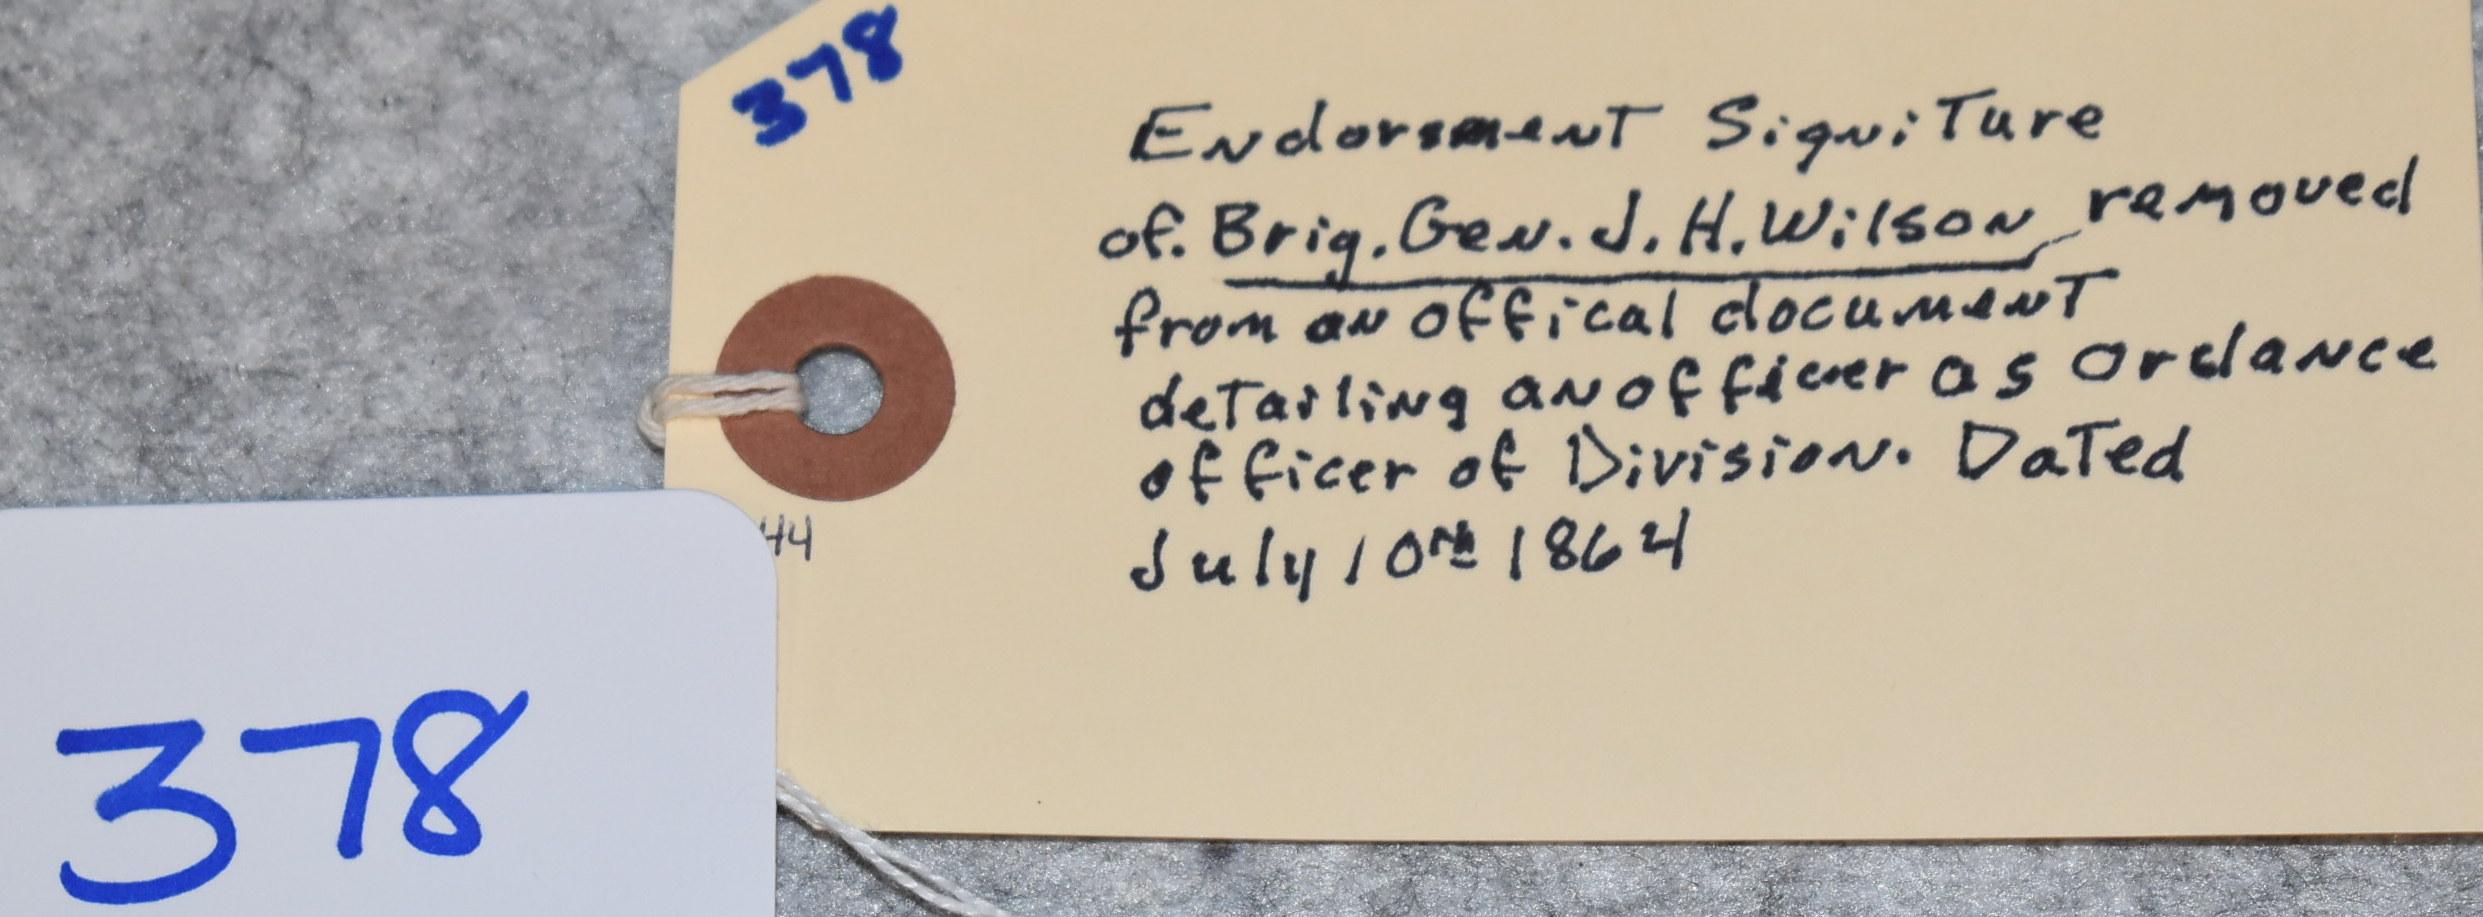 378
Endorsment Signiture
of. Brig. Gen. J. H. Wilson removed
from an offical document
detailing an officer as Ordance
officer of Division. Dated
July 10th 1864
44
378